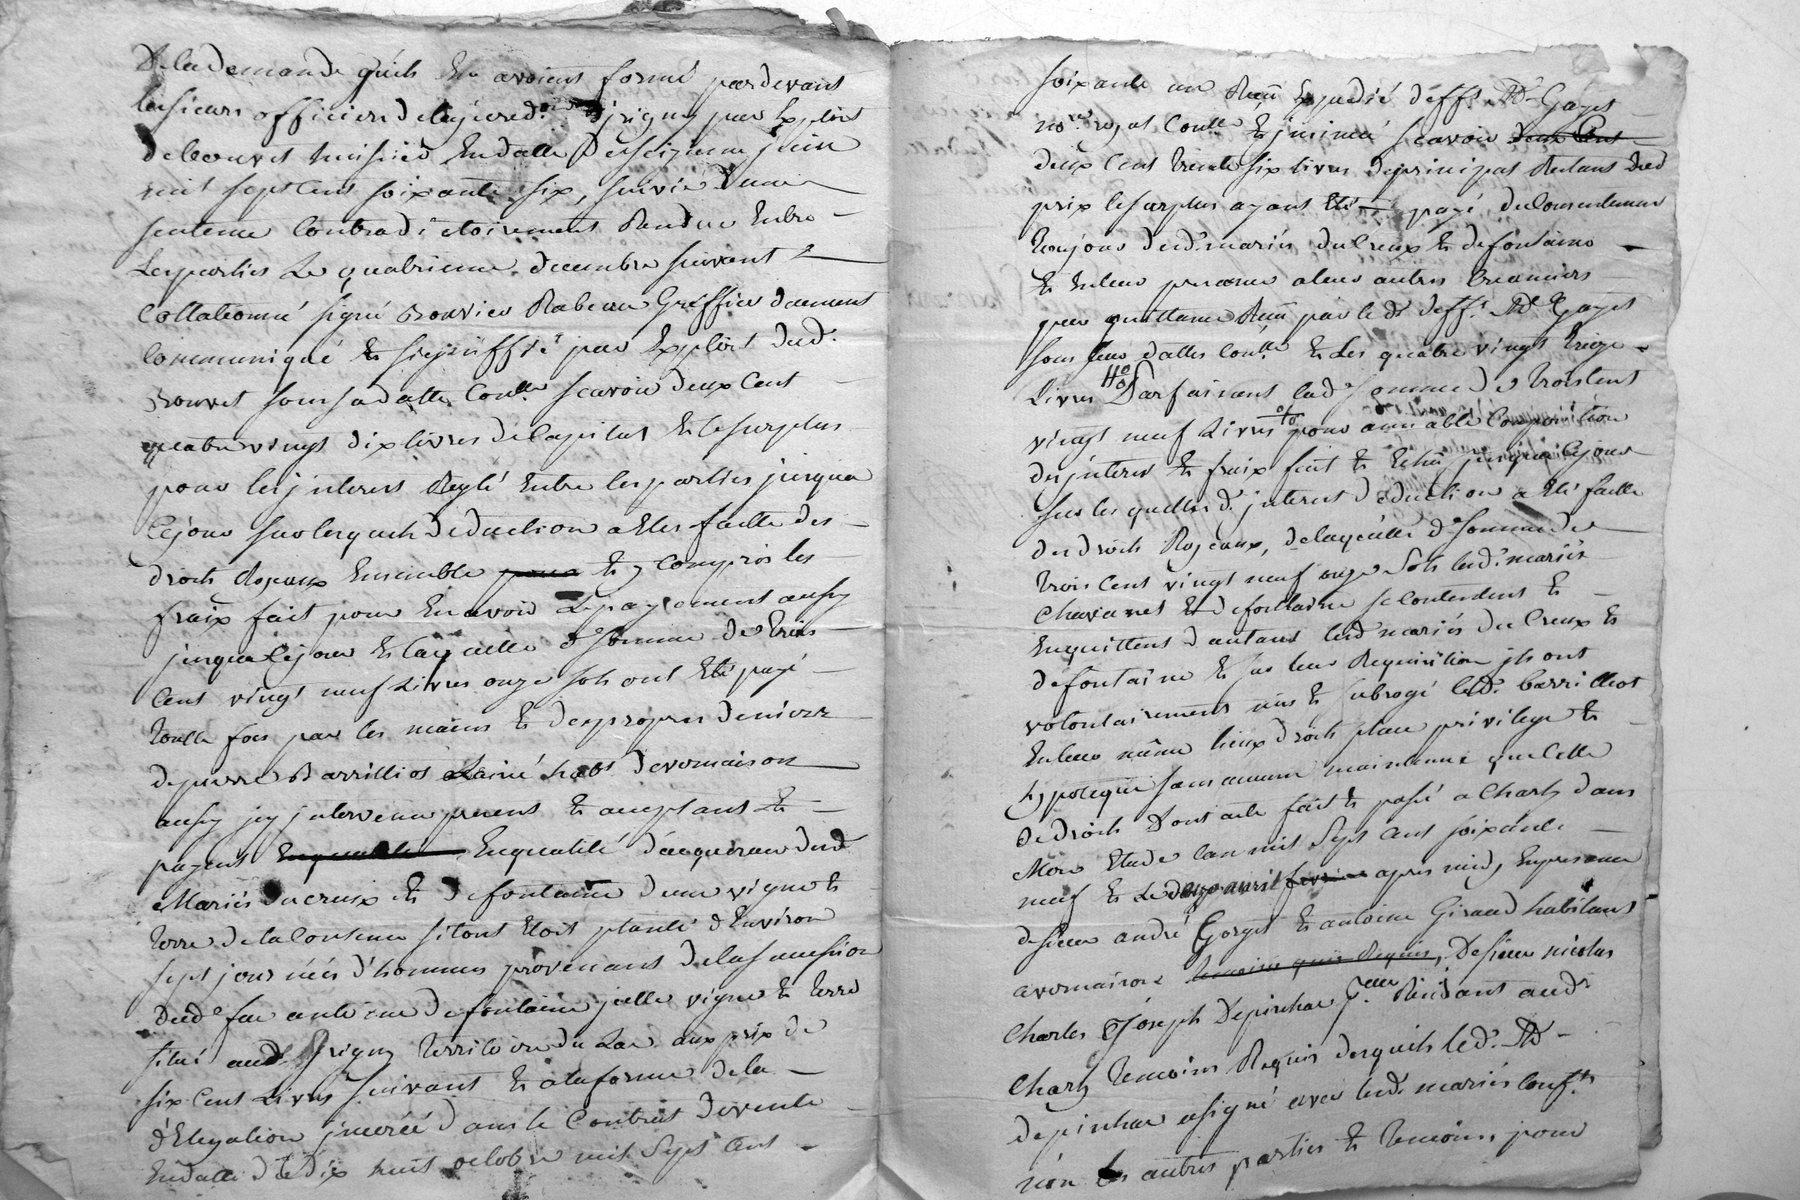 De la demande qu'ils En avoient formé pardevant
les sieurs officiers de la jured.on d'jrigny par Exploit
de bouvet huissier En datte du seizieme juin
mil sept cent soixante six, suivie d'une
sentence Contradictoirement Rendue Entre
Les parties Le quatrieme decembre suivant
Collationné signé Bouvier Rabeau Greffier duement
Communiqué Et signiffié par Exploit dud.
Bouvet sous sa datte Con.lle scavoir deux cent
quatre vingt dix livres de Capital Et le surplus
pour les jnterets Reglé Entre les parties jusqua
Ce jour sur lesquels deduction a Eté faitte des
droits Royaux Ensemble Et y Compris les
fraix fait pour En avoir Le payement aussy
jusqua Ce jour Et laquelle d.e somme de trois
Cent vingt neuf Livres onze sols ont Eté payé
toutte fois par les mains Et des propres deniers
de pierre Barrilliot Lainé hab.t de vomaison
aussy jcy jntervenu present Et acceptant Et
payant En qualité d'acquereur desd.
Mariés ducreux Et defontaine d'une vigne Et
terre de la Contenue si tout Etoit planté d'Environ
sept journées d'hommes provenant de la succession
dud.e feu antoine defontaine jcelle vigne Et terre
situé aud. jrigny territoire du Lac aux prix de
six Cent Livres suivant Et a la forme de la
d'Elegation jncerée dans le Contrat de vente
En datte du dix huit octobre mil sept Cent
soixante un Reçu Expedié d'eff. M.e Gayet
no.re royal Con.lle Et jnsinué scavoir deux Cent
deux cent trente six livres de principal Restant dud
prix le surplus ayant Eté payé, du Consentement
toujours desd. mariés du Creux Et defontaine
Et En leur presence a leur autres Creanciers
par quittance Reçu par led. deff. M.e Gayet
sous leur dattes Con.lle Et Les quatre vingt treize
Livres Parfaisant lad.e somme de trois Cent
vingt neuf Livres pour amiable Composition
des jnterets Et fraix fait Et Echu jusqua Ce jour
sur les quelles d. jnterets deduction a Eté faitte
des droits Royaux, de laquelle d.e somme de
trois cent vingt neuf onze sols lesd. mariés
Chavanet Et defontaine se Contentent Et
En quittent d'autant lesd. mariés du Creux Et
defontaine Et sur leur Requisition jls ont
volontairement mis Et subrogé led. barrilliot
En leur même lieux droits place privilege Et
hypoteque sans aucune maintenue que Celle
de droit Dont acte fait Et passé a Charly dans
Mon Etude L'an mil sept Cent soixante
neuf Et Le douze avril fevrier apres midy En presence
de sieur andré Gorget Et antoine Giraud habitants
a vomaison temoins quis Requis, De sieur nicolas
Charles Joseph Depinhac Residant aud.
Charly temoins Requis desquels led. M.e
Depinhac a signé avec lesd. mariés
non Les autres parties Et temoins pour